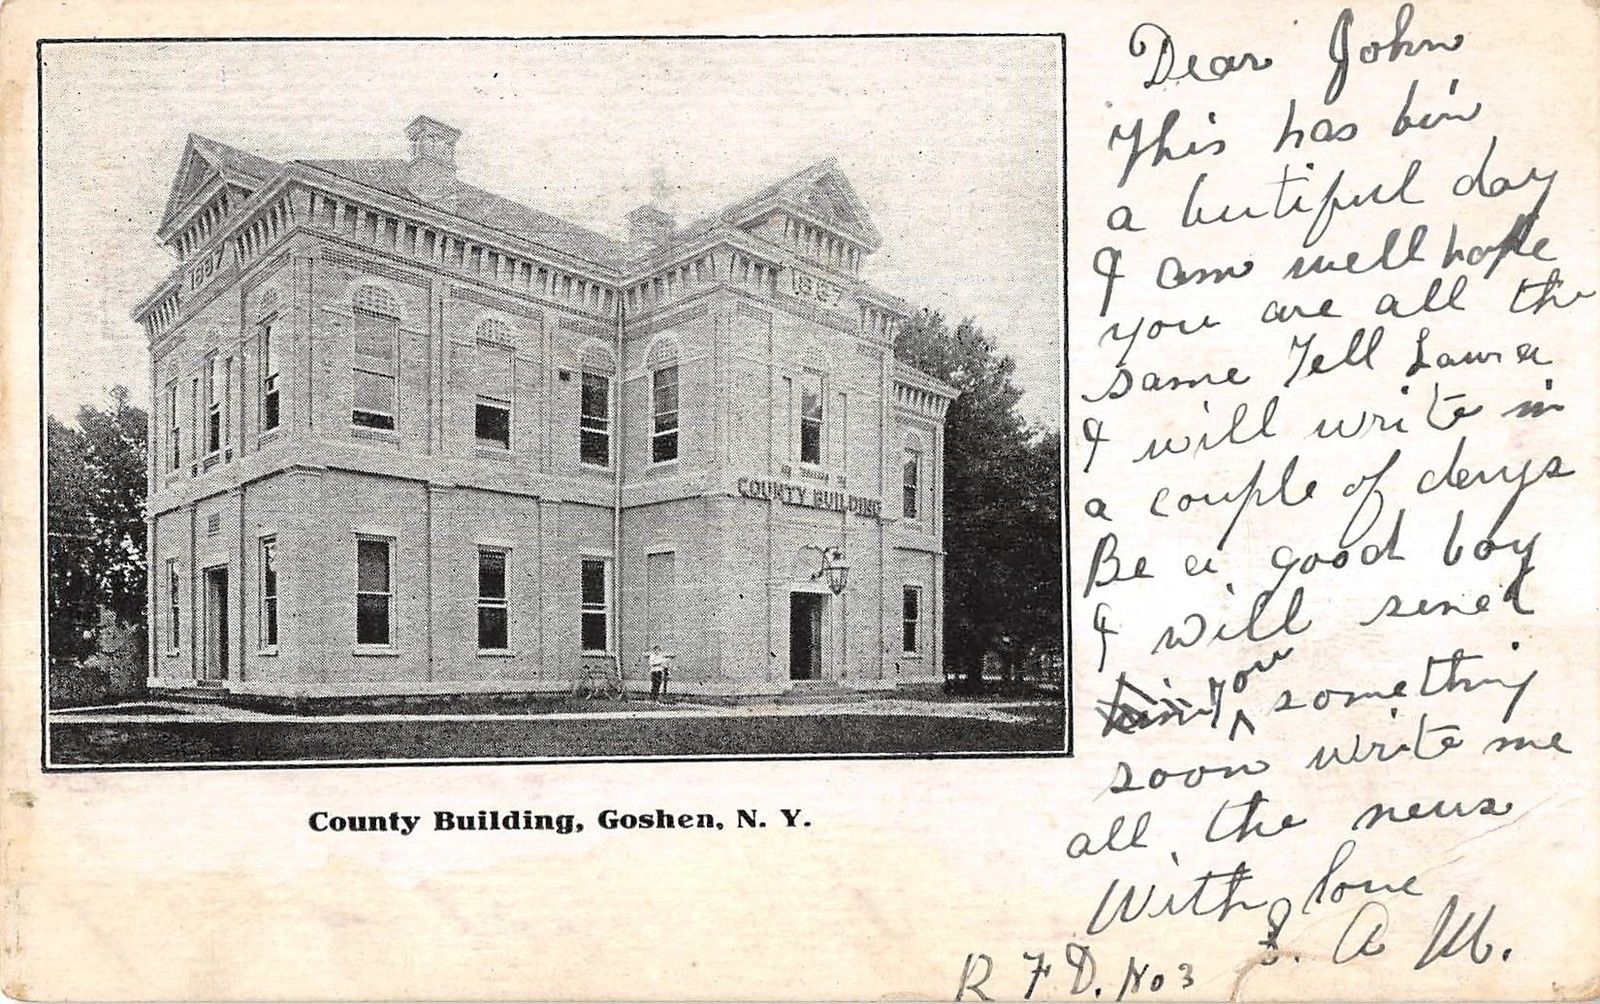 1887
1887
COUNTY BUILDING
County Building, Goshen, N. Y.
Dear John
This has bin
a butiful day
I am well hope
you are all the
same Tell Laura
I will write in
a couple of days
Be a good boy
I will send
you something
soon write me
all the news
With love
S. A. M.
R F D. No 3